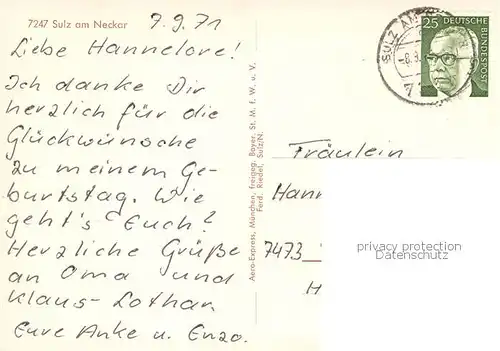 7247 Sulz am Neckar
7.9.71
Liebe Hannelore!
Ich danke Dir
herzlich für die
Glückwünsche
zu meinem Ge-
burtstag. Wie
geht's Euch?
Herzliche Grüße
an Oma und
Klaus-Lothar.
Eure Anke u. Enzo.
Aero-Express, München, freigeg. Bayer. St. M. f. W. u. V.
Ferd. Riedel, Sulz/N.
SULZ AM
-8.9.
25 DEUTSCHE
BUNDESPOST
Fräulein
Hann
7473
H
privacy protection
Datenschutz